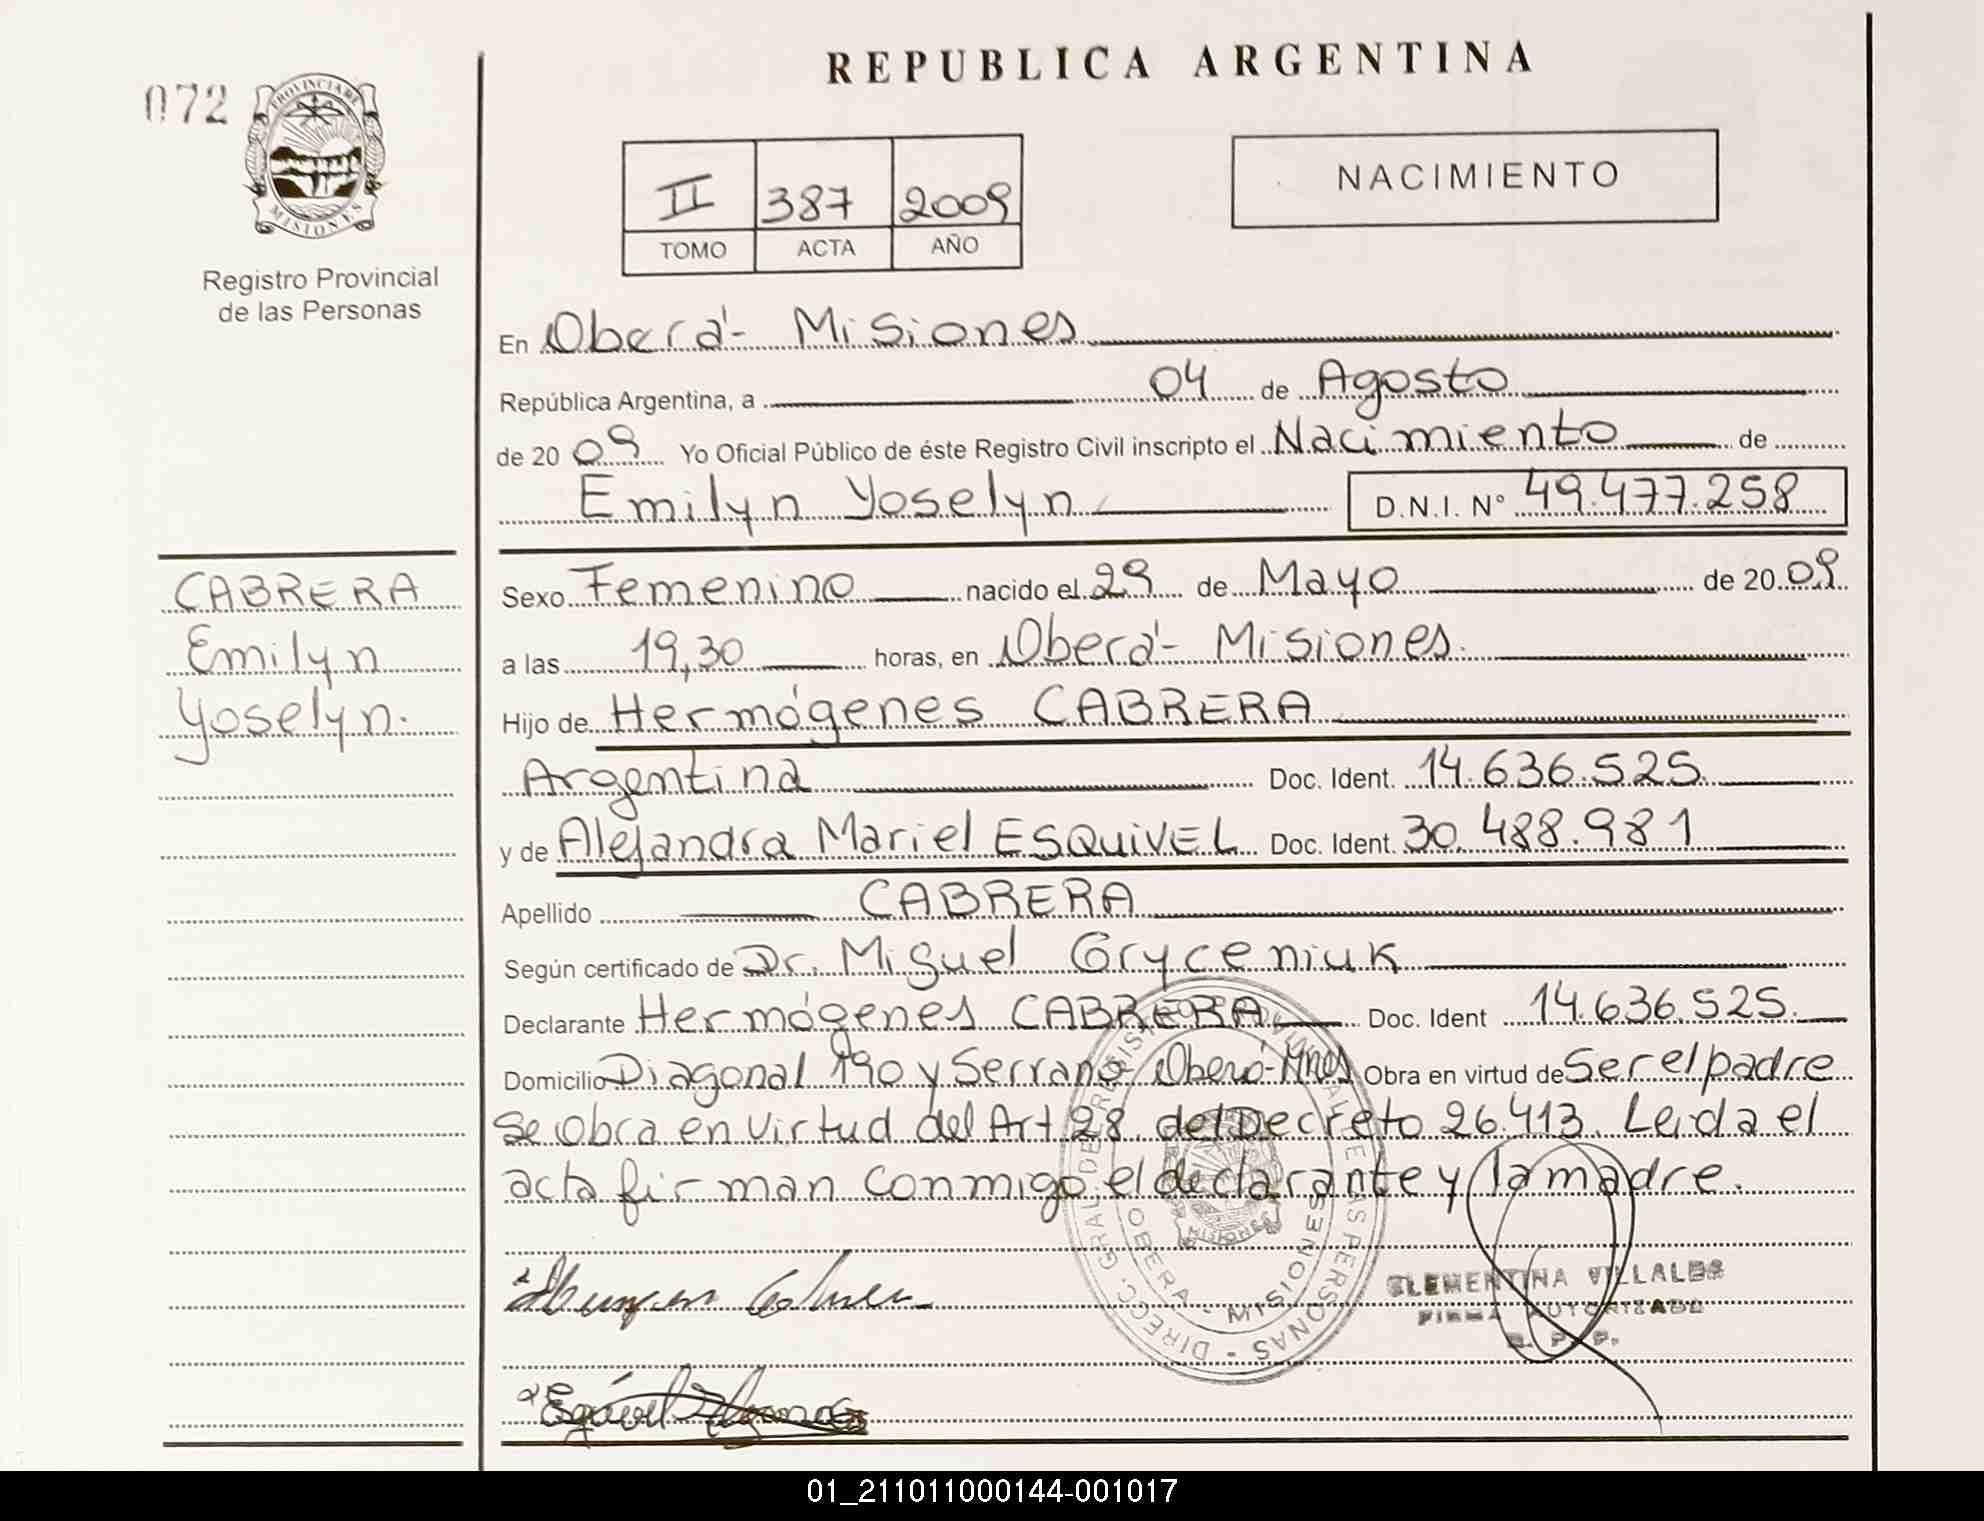 REPUBLICA ARGENTINA
072
PROVINCIA DE
MISIONES
Registro Provincial
de las Personas
II 387 2009
TOMO ACTA AÑO
NACIMIENTO
En Oberá - Misiones
República Argentina, a 04 de Agosto
de 20 09 Yo Oficial Público de éste Registro Civil inscripto el Nacimiento de
Emilyn Yoselyn D.N.I. N° 49.477.258
CABRERA
Emilyn
Yoselyn.
Sexo Femenino nacido el 29 de Mayo de 20 09
a las 19,30 horas, en Oberá - Misiones.
Hijo de Hermógenes CABRERA
Argentina Doc. Ident. 14.636.525
y de Alejandra Mariel ESQUIVEL Doc. Ident. 30.488.981
Apellido CABRERA
Según certificado de Dr. Miguel Gryceniuk
Declarante Hermógenes CABRERA Doc. Ident 14.636.525.
Domicilio Diagonal 190 y Serrano Oberá - Mnes Obra en virtud de Ser el padre
Se obra en virtud del Art 28. del Decreto 26.413. Leida el
acta firman conmigo, el declarante y la madre.
DIRECC. GRAL DE REGISTRO PROVINCIAL DE LAS PERSONAS -
OBERA - MISIONES
MISIONES
CLEMENTINA VILLALBA
FIRMA AUTORIZADA
R. P. P.
01_211011000144-001017